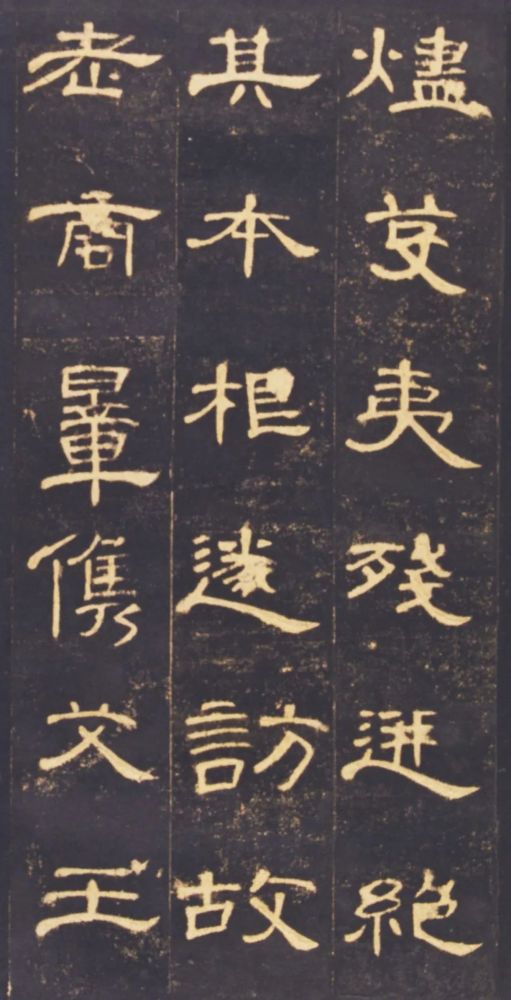 燼芟夷殘迸絕
其本根遂訪故
老商量儁艾王